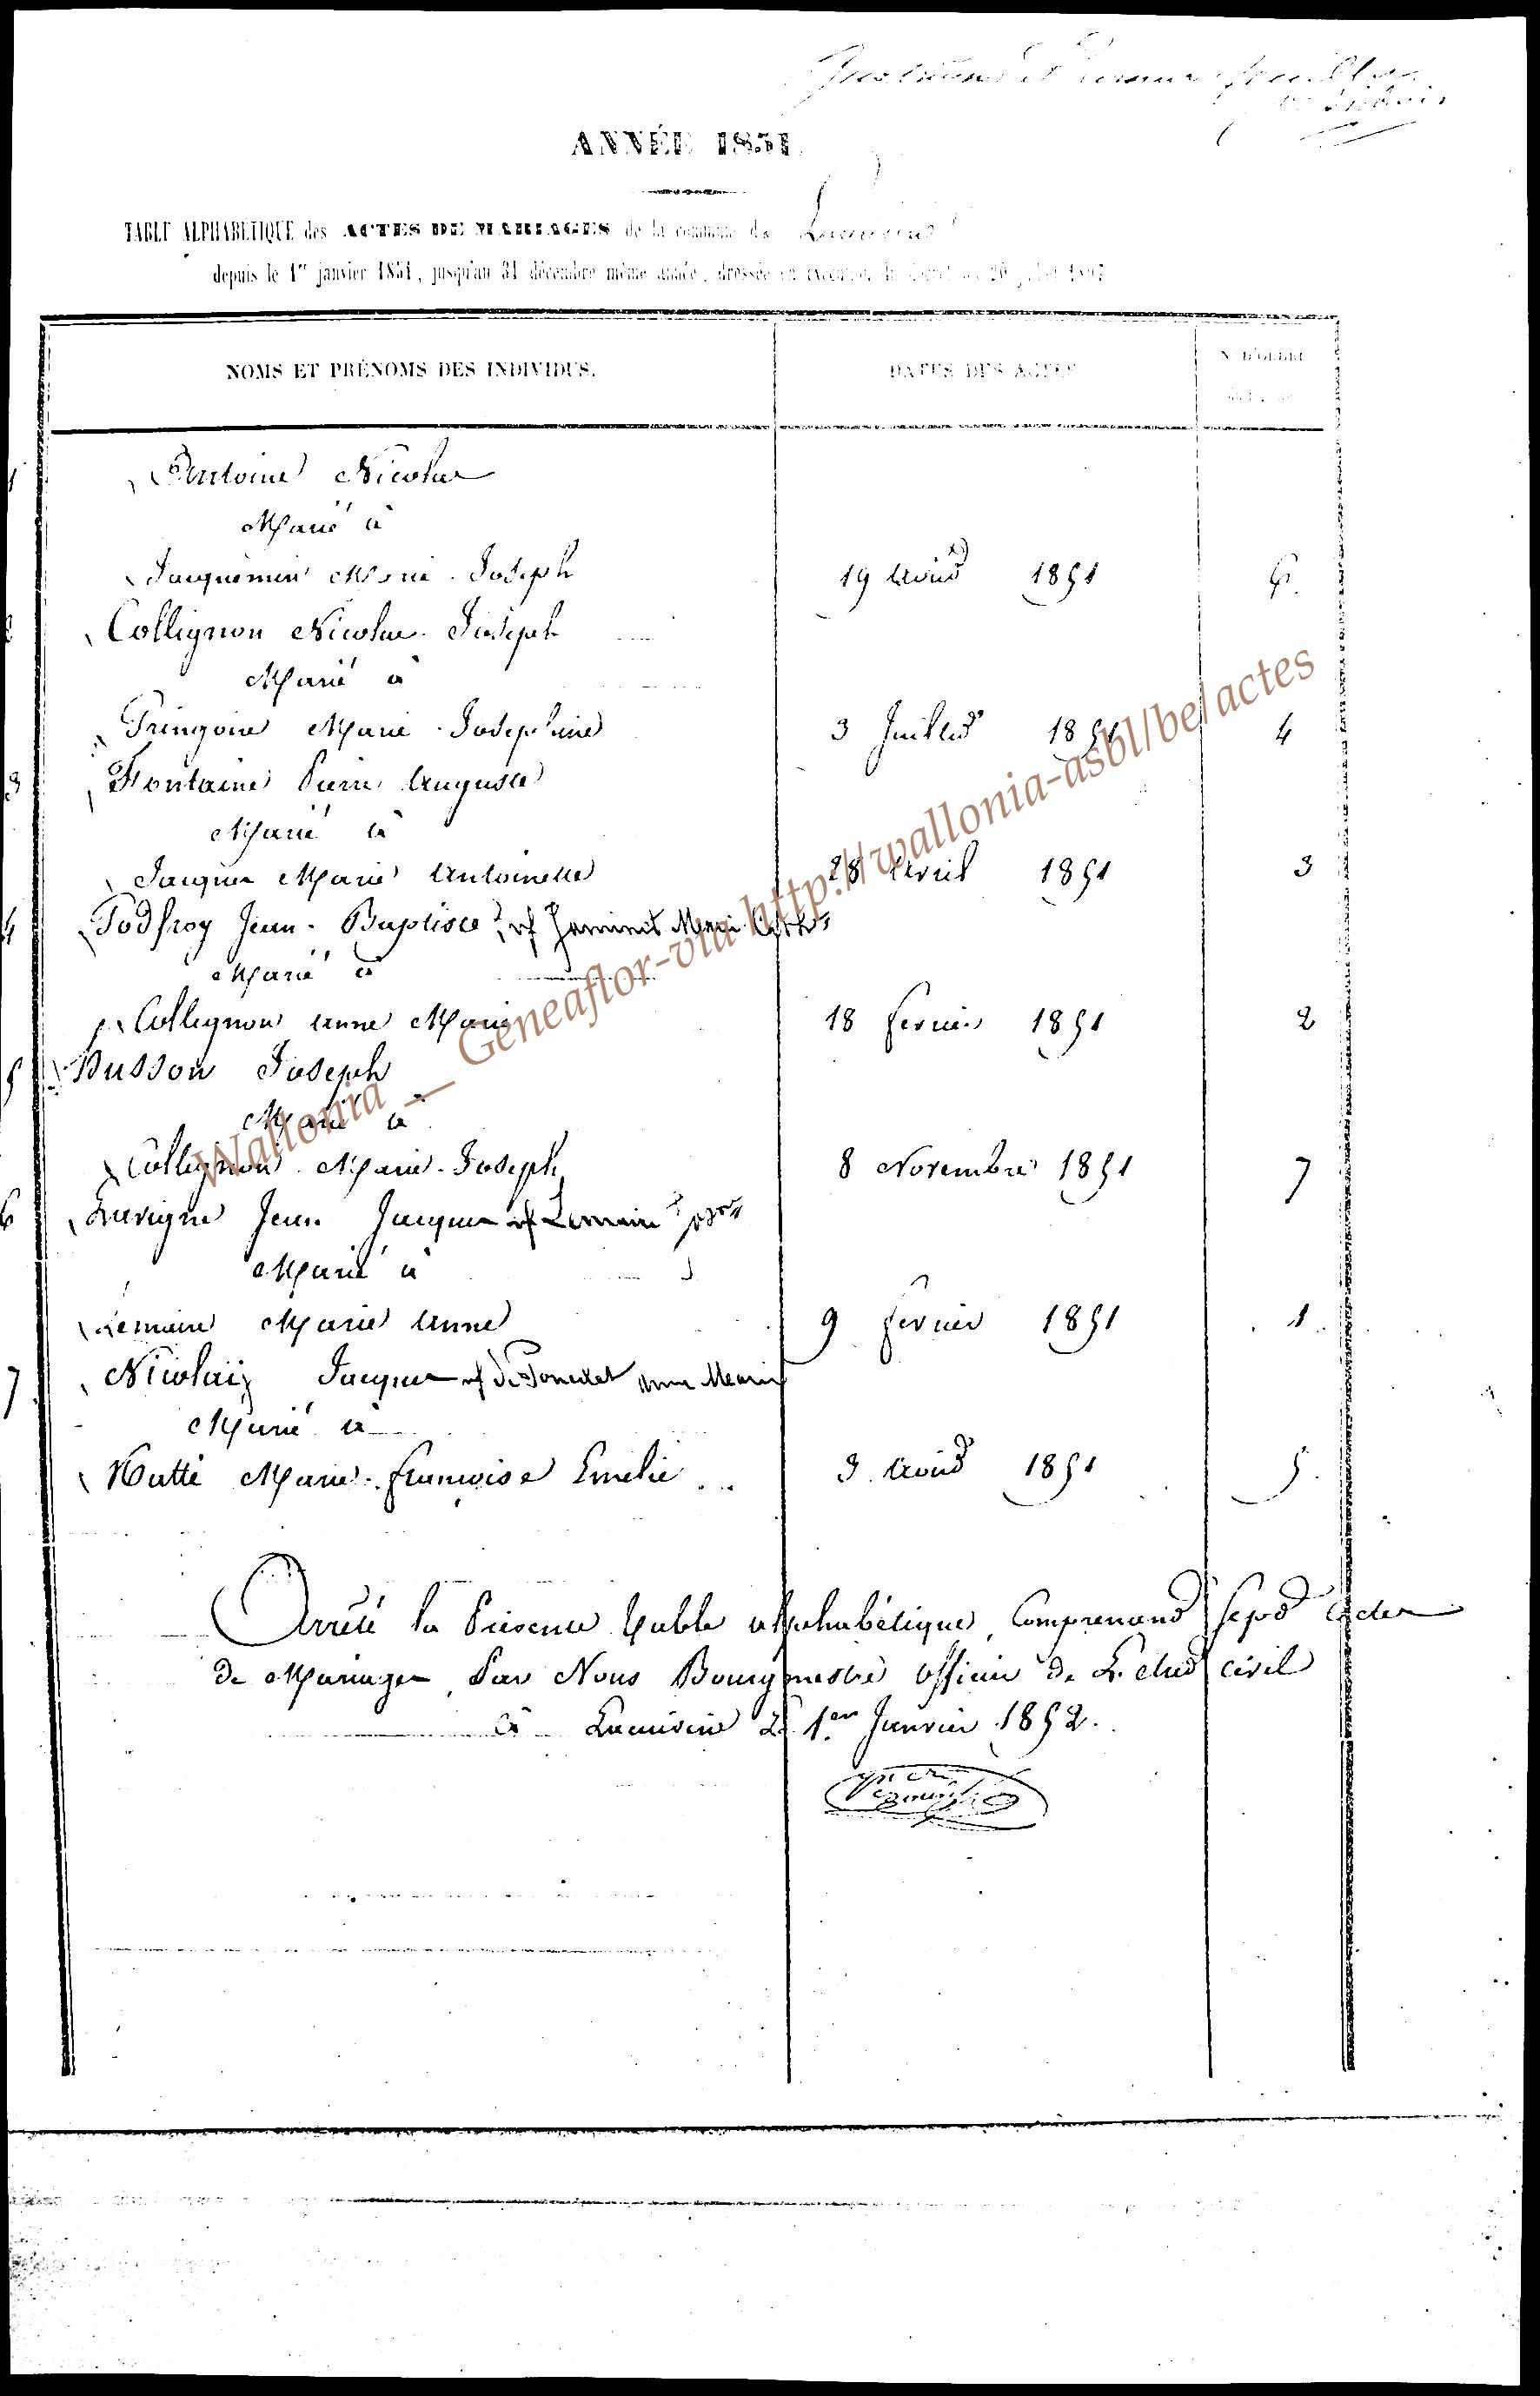 ANNÉE 1851.
TABLE ALPHABÉTIQUE des ACTES DE MARIAGES de la commune de
depuis le 1er janvier 1851, jusqu'au 31 décembre même année, dressée en exécution du 20
NOMS ET PRÉNOMS DES INDIVIDUS. DATES DES ACTES
Antoine Nicolas
Marié à
Jacquemin Marie-Joseph 19 Août 1851 6.
Collignon Nicolas-Joseph
Marié à
Marie-Josephine 3 Juillet 1851 4
3 Fontaine Pierre Auguste
Marié à
Jacques Marie Antoinette 28 Avril 1851 3
4 Godfroy Jean-Baptiste vf Marie
Marié à
Collignon Anne Marie 18 fevrier 1851 2
5 Husson Joseph
Marié à
Collignon Marie-Joseph 8 Novembre 1851 7
6 Lavigne Jean Jacques vf
Marié à
Lemaire Marie Anne 9 fevrier 1851 1
7 Nicolaij Jacques vf de Anne Marie
Marié à
Hatté Marie-françoise Emelie 3 Août 1851 5.
Arrêté la Présente table alphabétique, Comprenant Sept actes
de Mariages, Par Nous Bourgmestre officier de L'état civil
à le 1er Janvier 1852.
Wallonia __ Geneaflor-via http://wallonia-asbl/be/actes